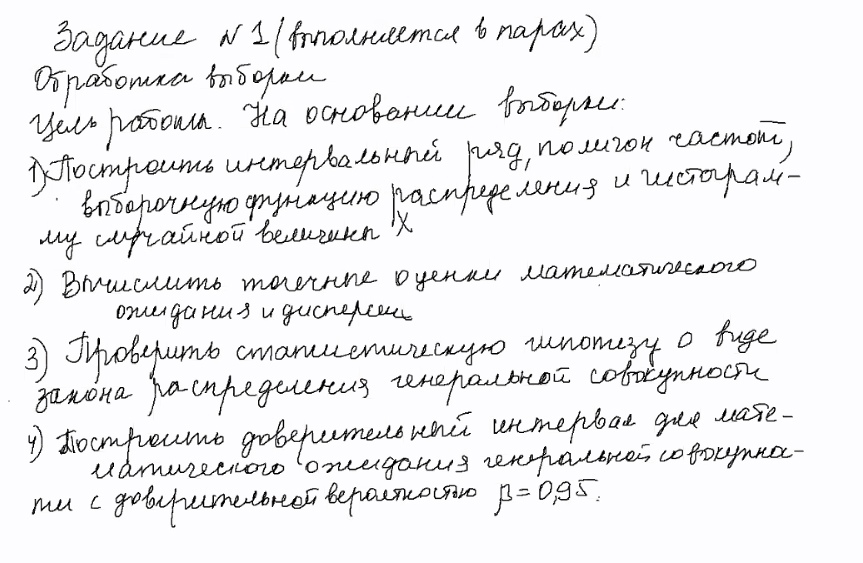 Задание N1 (выполняется в парах)
Обработка выборки
Цель работы. На основании выборки:
1) Построить интервальный ряд, полигон частот,
выборочную функцию распределения и гистограм-
му случайной величины X
2) Вычислить точечные оценки математического
ожидания и дисперсии
3) Проверить статистическую гипотезу о виде
закона распределения генеральной совокупности
4) Построить доверительный интервал для мате-
матического ожидания генеральной совокупно-
ти с доверительной вероятностью β = 0,95.